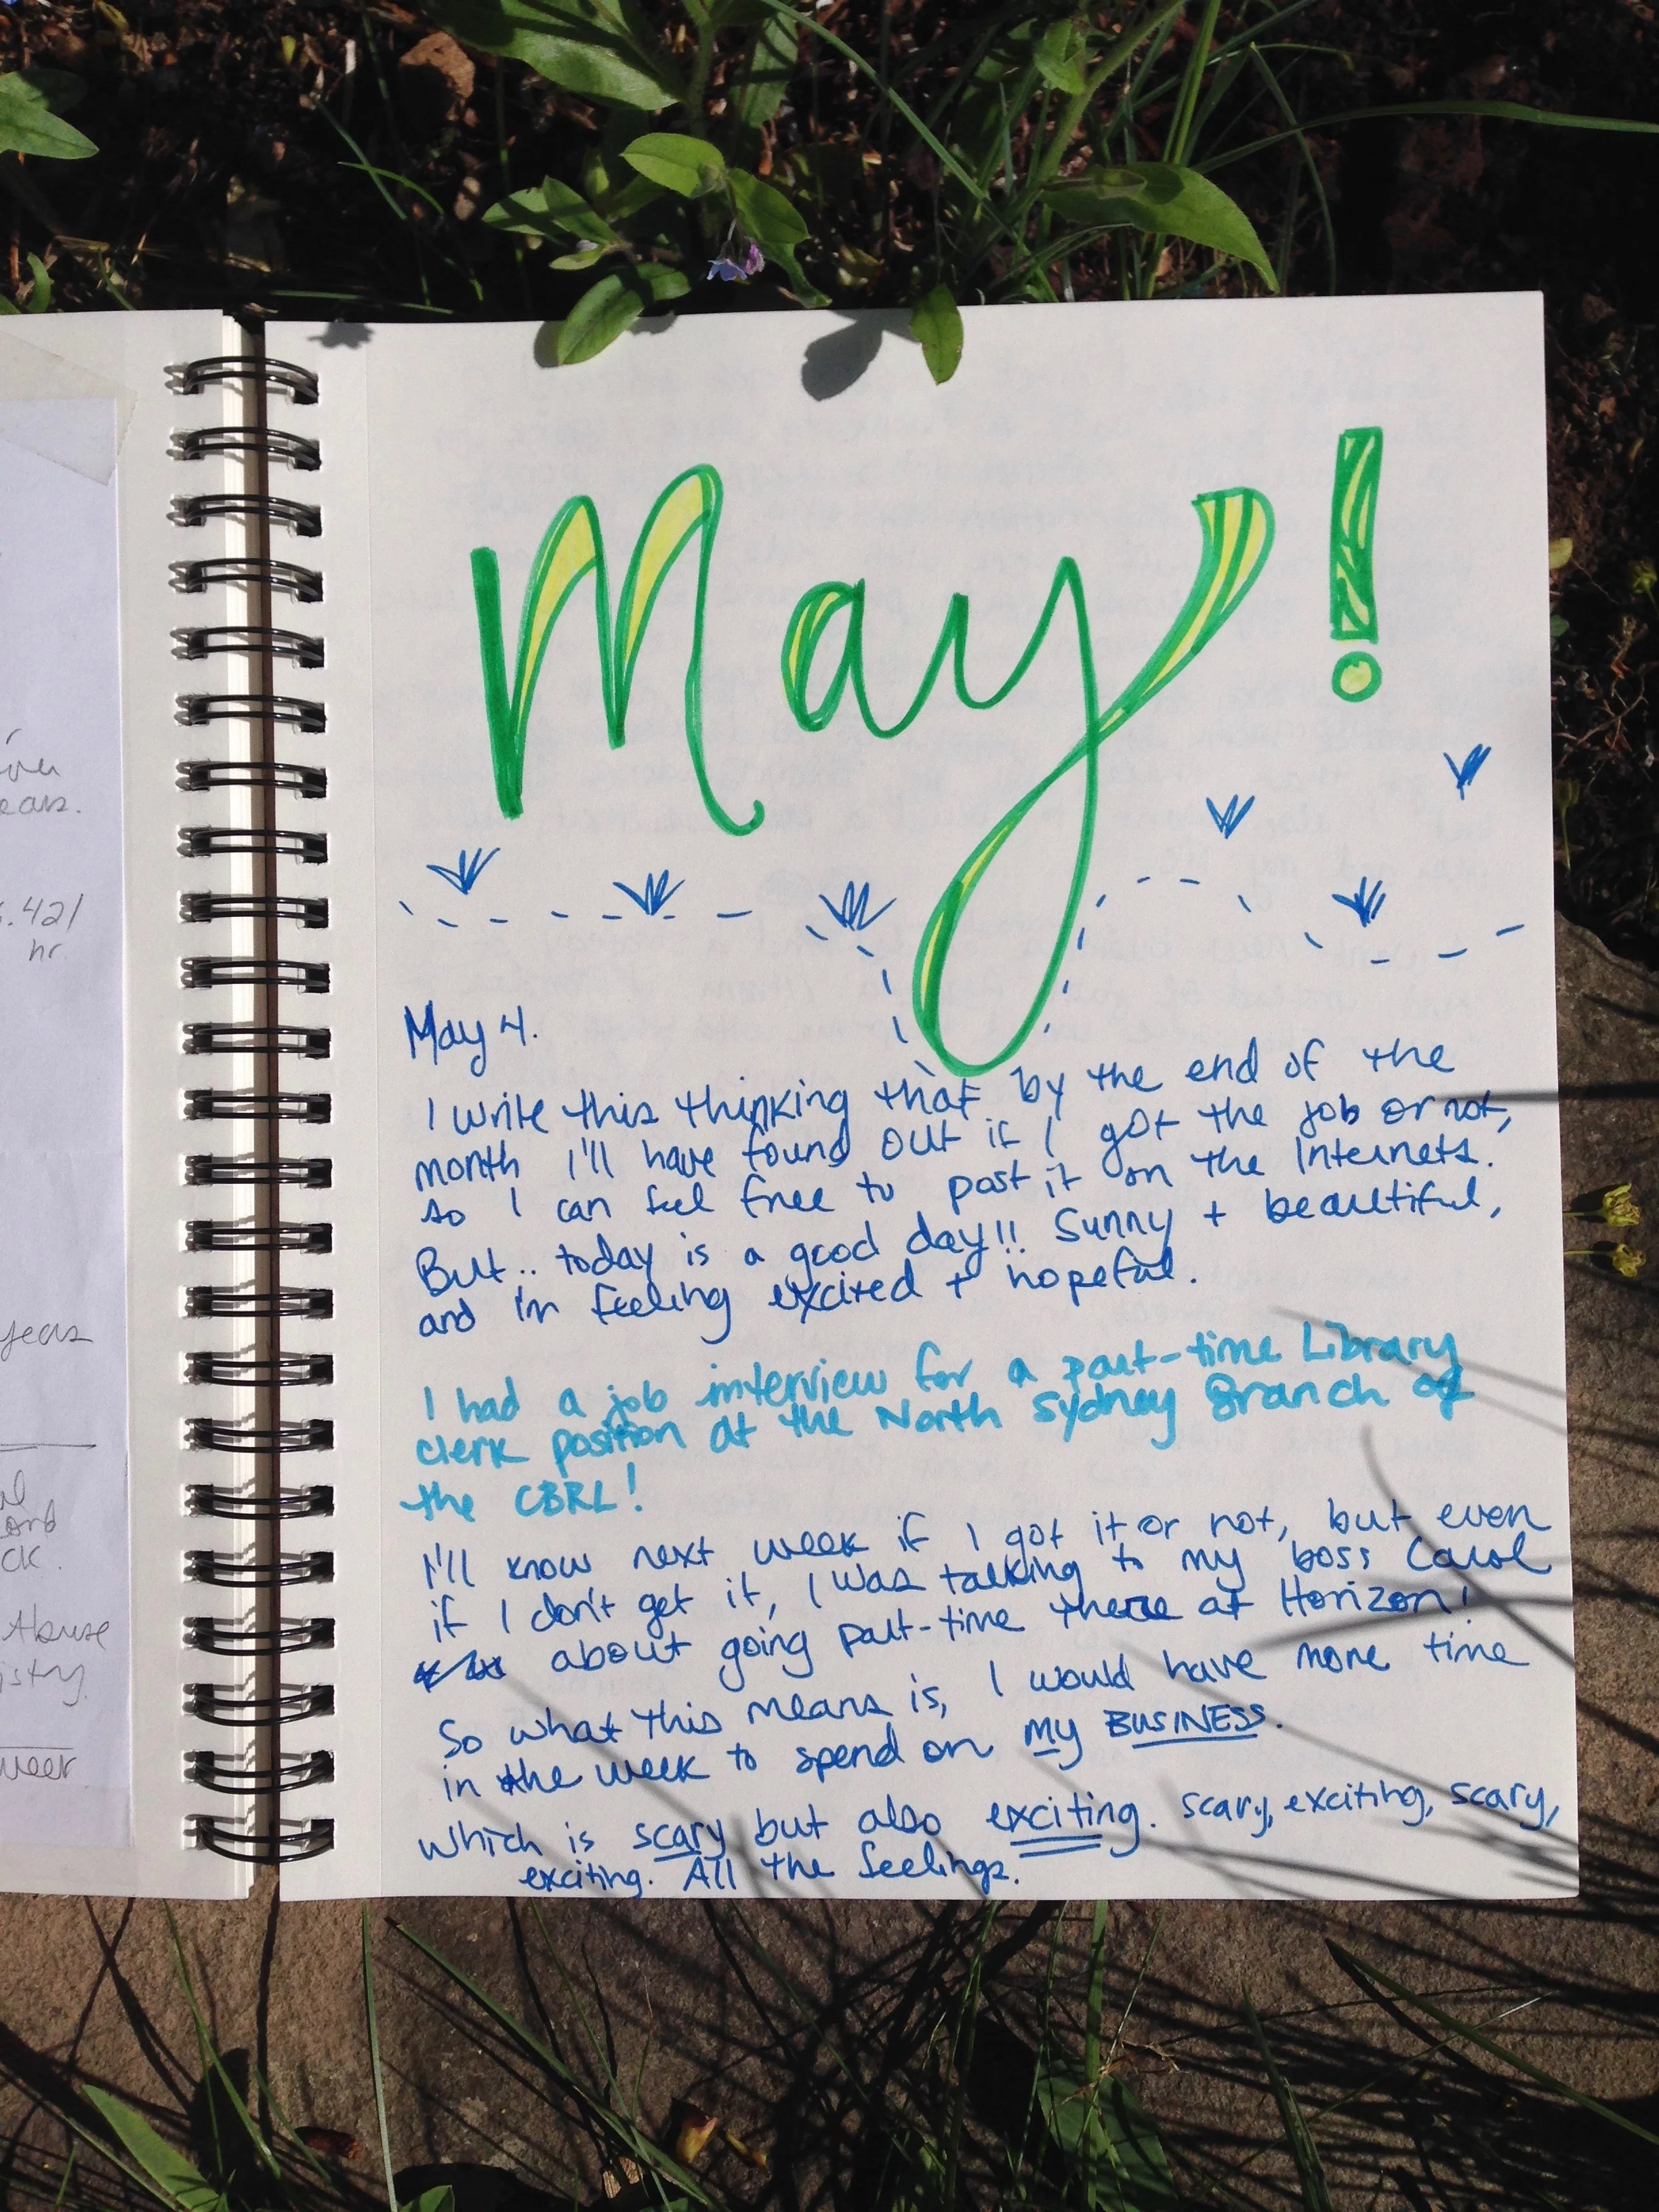 ears.
.42/
hr.
years
Abuse
May!
May 4.
I write this thinking that by the end of the
month I'll have found out if I got the job or not,
so I can feel free to post it on the Internets.
But.. today is a good day!! Sunny + beautiful,
and I'm feeling excited + hopeful.
I had a job interview for a part-time Library
clerk position at the North Sydney Branch of
the CBRL!
I'll know next week if I got it or not, but even
if I don't get it, I was talking to my boss Carol
about going part-time there at Horizon!
So what this means is, I would have more time
in the week to spend on my BUSINESS.
Which is scary but also exciting. scary, exciting, scary,
exciting. All the feelings.